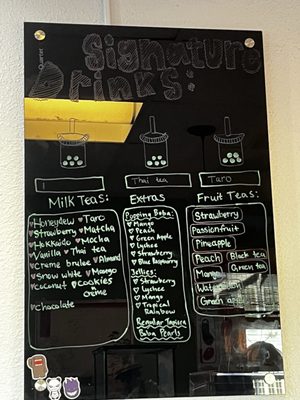 Signature
Drinks:
Thai tea
Taro
Milk Teas:
Honeydew ♥Taro
♥Strawberry ♥Matcha
♥Hokkaido ♥Mocha
♥Vanilla ♥Thai tea
♥Creme brulee ♥Almond
♥Snow white ♥Mango
♥Coconut ♥Cookies
n
creme
♥Chocolate
Extras
Popping Boba:
♥Mango
♥Peach
♥Green Apple
♥Lychee
♥Strawberry
♥Blue Raspberry
Jellies:
♥Strawberry
♥Lychee
♥Mango
♥Tropical
Rainbow
Regular Tapioca
Boba Pearls
Fruit Teas:
Strawberry
Passionfruit
Pineapple
Peach
Black tea
Mango
Green tea
Green